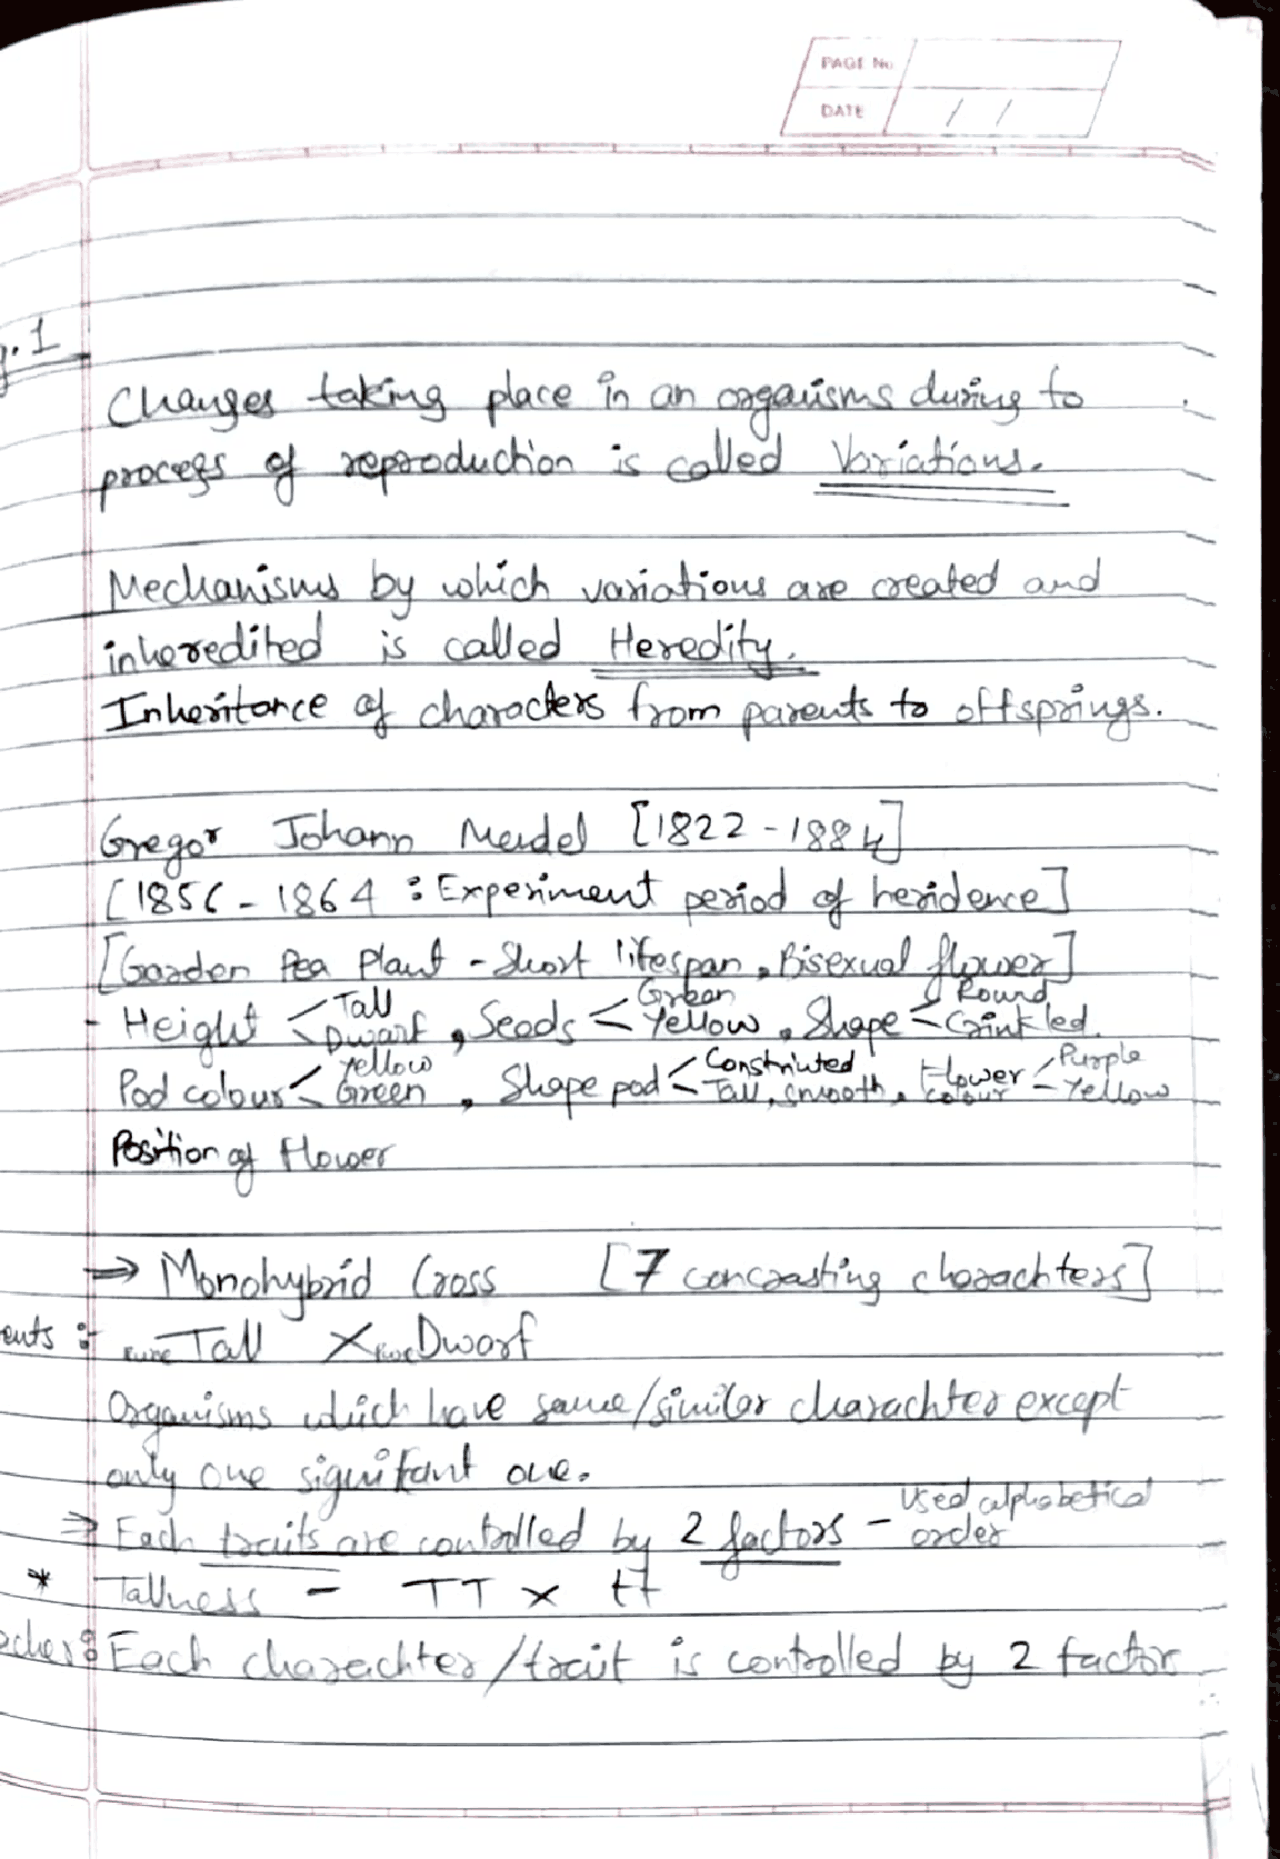 PAGE No
DATE / /
g. 1
Changes taking place in an organisms during to
process of reproduction is called Variations.
Mechanisms by which variations are created and
inheredited is called Heredity.
Inheritance of characters from parents to offsprings.
Gregor Johann Mendel [1822 - 1884]
[1856 - 1864 : Experiment period of heridence]
[Garden Pea Plant - Short lifespan, Bisexual flower]
- Height < Tall Dwarf, Seeds < Green Yellow, Shape < Round Crinkled.
Pod colour < Yellow Green, Shape pod < Constricted Tall, smooth, Flower colour < Purple Yellow
Position of Flower
→ Monohybrid Cross [7 concrasting charachters]
ents : pure Tall X pure Dwarf
Organisms which have same/similar charachter except
only one signifant one.
⇒ Each traits are controlled by 2 factors - Used alphabetical order
* Tallness - TT x tt
Each charachter/trait is controlled by 2 factor